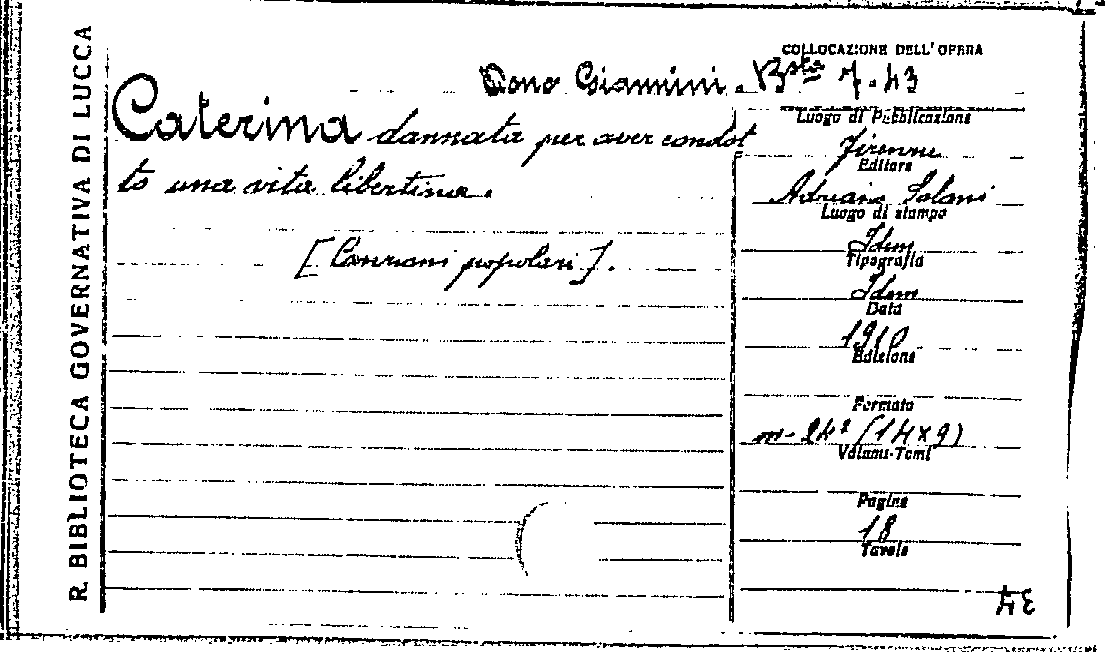 R. BIBLIOTECA GOVERNATIVA DI LUCCA
COLLOCAZIONE DELL'OPERA
Dono Giannini. Bsta 7.43
Caterina dannata per aver condot
to una vita libertina.
[Canzoni popolari].
Luogo di Pubblicazione
Firenze
Editore
Adriano Salani
Luogo di stampa
Idem
Tipografia
Idem
Data
1910
Edizione
Formato
in-24° (14x9)
Volume-Tomi
Pagine
18
Tavole